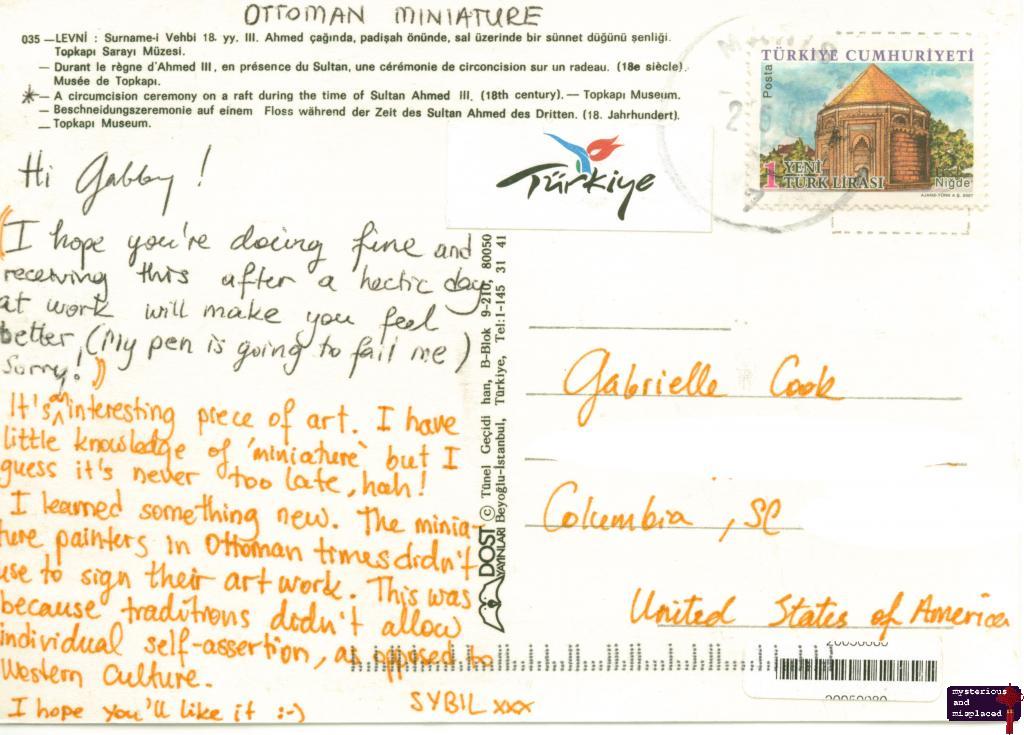 OTTOMAN MINIATURE
035 —LEVNİ : Surname-i Vehbi 18. yy. III. Ahmed çağında, padişah önünde, sal üzerinde bir sünnet düğünü şenliği.
Topkapı Sarayı Müzesi.
— Durant le règne d'Ahmed III, en présence du Sultan, une cérémonie de circoncision sur un radeau. (18e siècle).
Musée de Topkapı.
— A circumcision ceremony on a raft during the time of Sultan Ahmed III. (18th century). — Topkapı Museum.
— Beschneidungszeremonie auf einem Floss während der Zeit des Sultan Ahmed des Dritten. (18. Jahrhundert).
— Topkapı Museum.
Hi Gabby !
(I hope you're doing fine and
receiving this after a hectic day
at work will make you feel
better, (My pen is going to fail me)
Sorry!)
It's an interesting piece of art. I have
little knowledge of 'miniature' but I
guess it's never too late, hah!
I learned something new. The minia-
ture painters in Ottoman times didn't
use to sign their art work. This was
because traditions didn't allow
individual self-assertion, as opposed to
Western Culture.
I hope you'll like it :-)
SYBIL xxx
Türkiye
DOST YAYINLARI
© Tünel Geçidi han, B-Blok 9-210, 80050
Beyoğlu-İstanbul, Türkiye, Tel: 1-145 31 41
TÜRKİYE CUMHURİYETİ
Posta
1 YENİ
TÜRK LİRASI
Niğde
AJANS-TÜRK A.Ş. 2007
Gabrielle Cook
Columbia, SC
United States of America
20050080
mysterious
and
misplaced